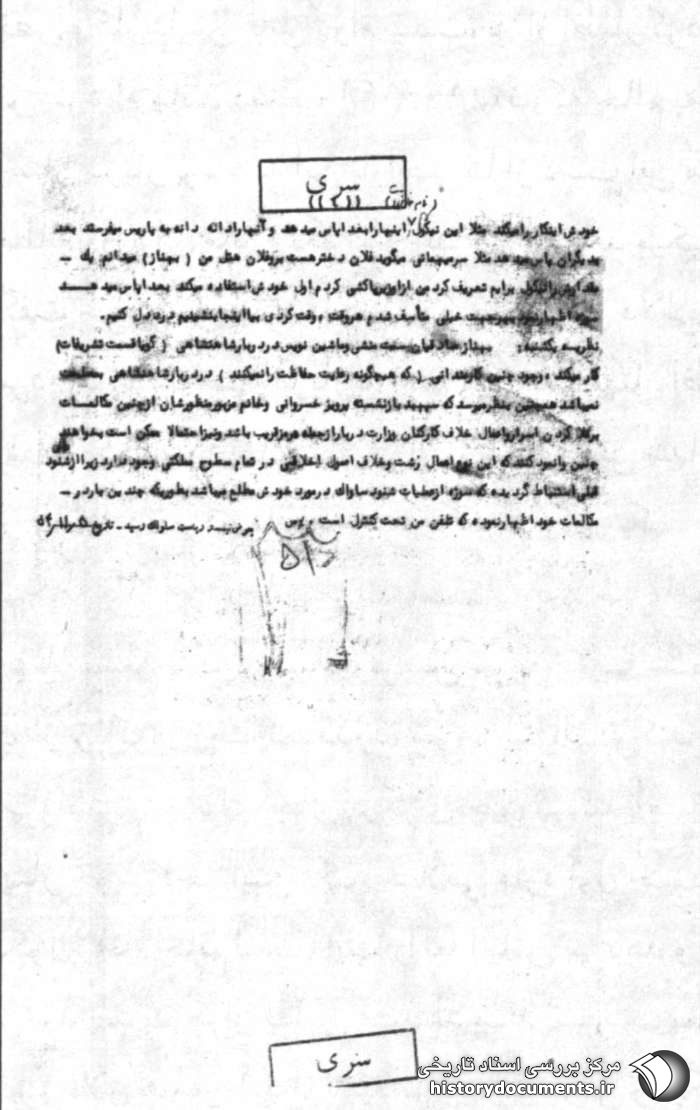 سری
خودش اینکار را میکند مثلا این نیکول اینها را بعدا پاس میدهد و آنها را دانه دانه به پاریس میفرستد بعد
بدیگران پاس میدهد مثلا سر میهمانی میگوید فلان دختر هست برو فلان هتل من ( بهناز ) میدانم یك ـ
نیکول برایم تعریف کرد من از او زیرپاکشی کردم اول خودش استفاده میکند بعدا پاس میدهد
سوژه اظهار نمود بهرجهت خیلی متأسف شدم هروقت وقت کردی بیا اینجا بنشینیم درد دل کنیم.
نظریه یکشنبه : بهناز سمت منشی و ماشین نویس در دربار شاهنشاهی ( گویا قسمت تشریفات)
کار میکند و وجود چنین کارمندانی ( که هیچگونه رعایت حفاظت را نمیکنند ) در دربار شاهنشاهی بمصلحت
نمیباشد همچنین بنظر میرسد که سپهبد بازنشسته پرویز خسروانی و خانم مزبور منظورشان از چنین مکالمات
برملا کردن اسرار و اعمال خلاف کارکنان وزارت دربار از جمله هرمز قریب باشد و نیز احتمالا ممکن است بخواهند
چنین وانمود کنند که این نوع اعمال زشت و خلاف اصول اخلاقی در تمام سطوح مملکتی وجود دارد زیرا از شنود
قبلی استنباط گردیده که سوژه از عملیات شنود ساواك در مورد خودش مطلع میباشد بطوریکه چندین بار در ـ
مکالمات خود اظهار نموده که تلفن من تحت کنترل است
سری
مرکز بررسی اسناد تاریخی
historydocuments.ir